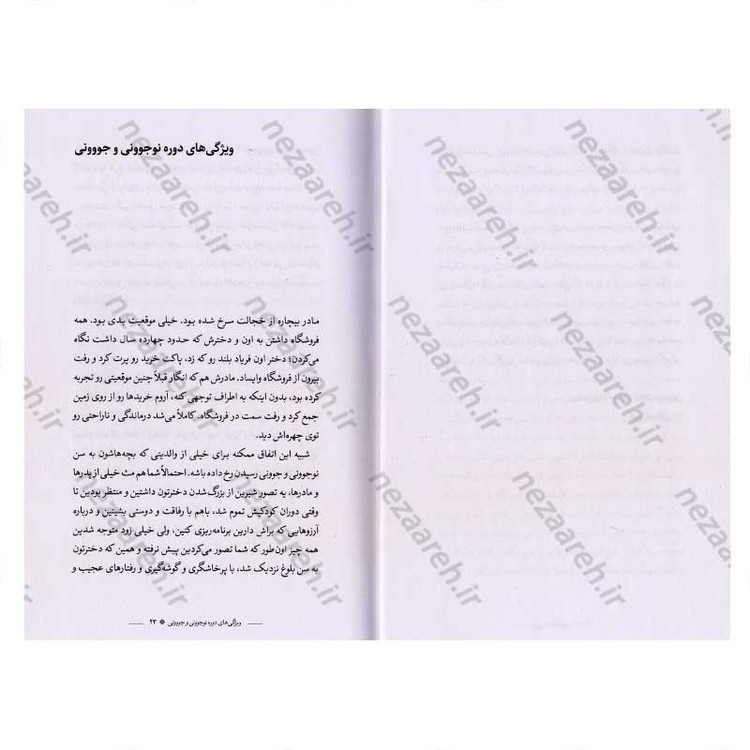 ویژگی‌های دوره نوجوونی و جووونی
مادر بیچاره از خجالت سرخ شده بود. خیلی موقعیت بدی بود. همه
فروشگاه داشتن به اون و دخترش که حدود چهارده سال داشت نگاه
می‌کردن؛ دختر اون فریاد بلند رو که زد، پاکت خرید رو پرت کرد و رفت
بیرون از فروشگاه وایساد. مادرش هم که انگار قبلاً چنین موقعیتی رو تجربه
کرده بود، بدون اینکه به اطراف توجهی کنه، آروم خریدها رو از روی زمین
جمع کرد و رفت سمت در فروشگاه. کاملاً می‌شد درماندگی و ناراحتی رو
توی چهره‌اش دید.
شبیه این اتفاق ممکنه برای خیلی از والدینی که بچه‌هاشون به سن
نوجوونی و جوونی رسیدن رخ داده باشه. احتمالاً شما هم مث خیلی از پدرها
و مادرها، یه تصور شیرین از بزرگ شدن دخترتون داشتین و منتظر بودین تا
وقتی دوران کودکیش تموم شد، باهم با رفاقت و دوستی بشینین و درباره
آرزوهایی که براش دارین برنامه‌ریزی کنین، ولی خیلی زود متوجه شدین
همه چیز اون‌طور که شما تصور می‌کردین پیش نرفته و همین که دخترتون
به سن بلوغ نزدیک شد، با پرخاشگری و گوشه‌گیری و رفتارهای عجیب و
ویژگی‌های دوره نوجوونی و جووونی ۲۳
nezaareh.ir
nezaareh.ir
nezaareh.ir
nezaareh.ir
nezaareh.ir
nezaareh.ir